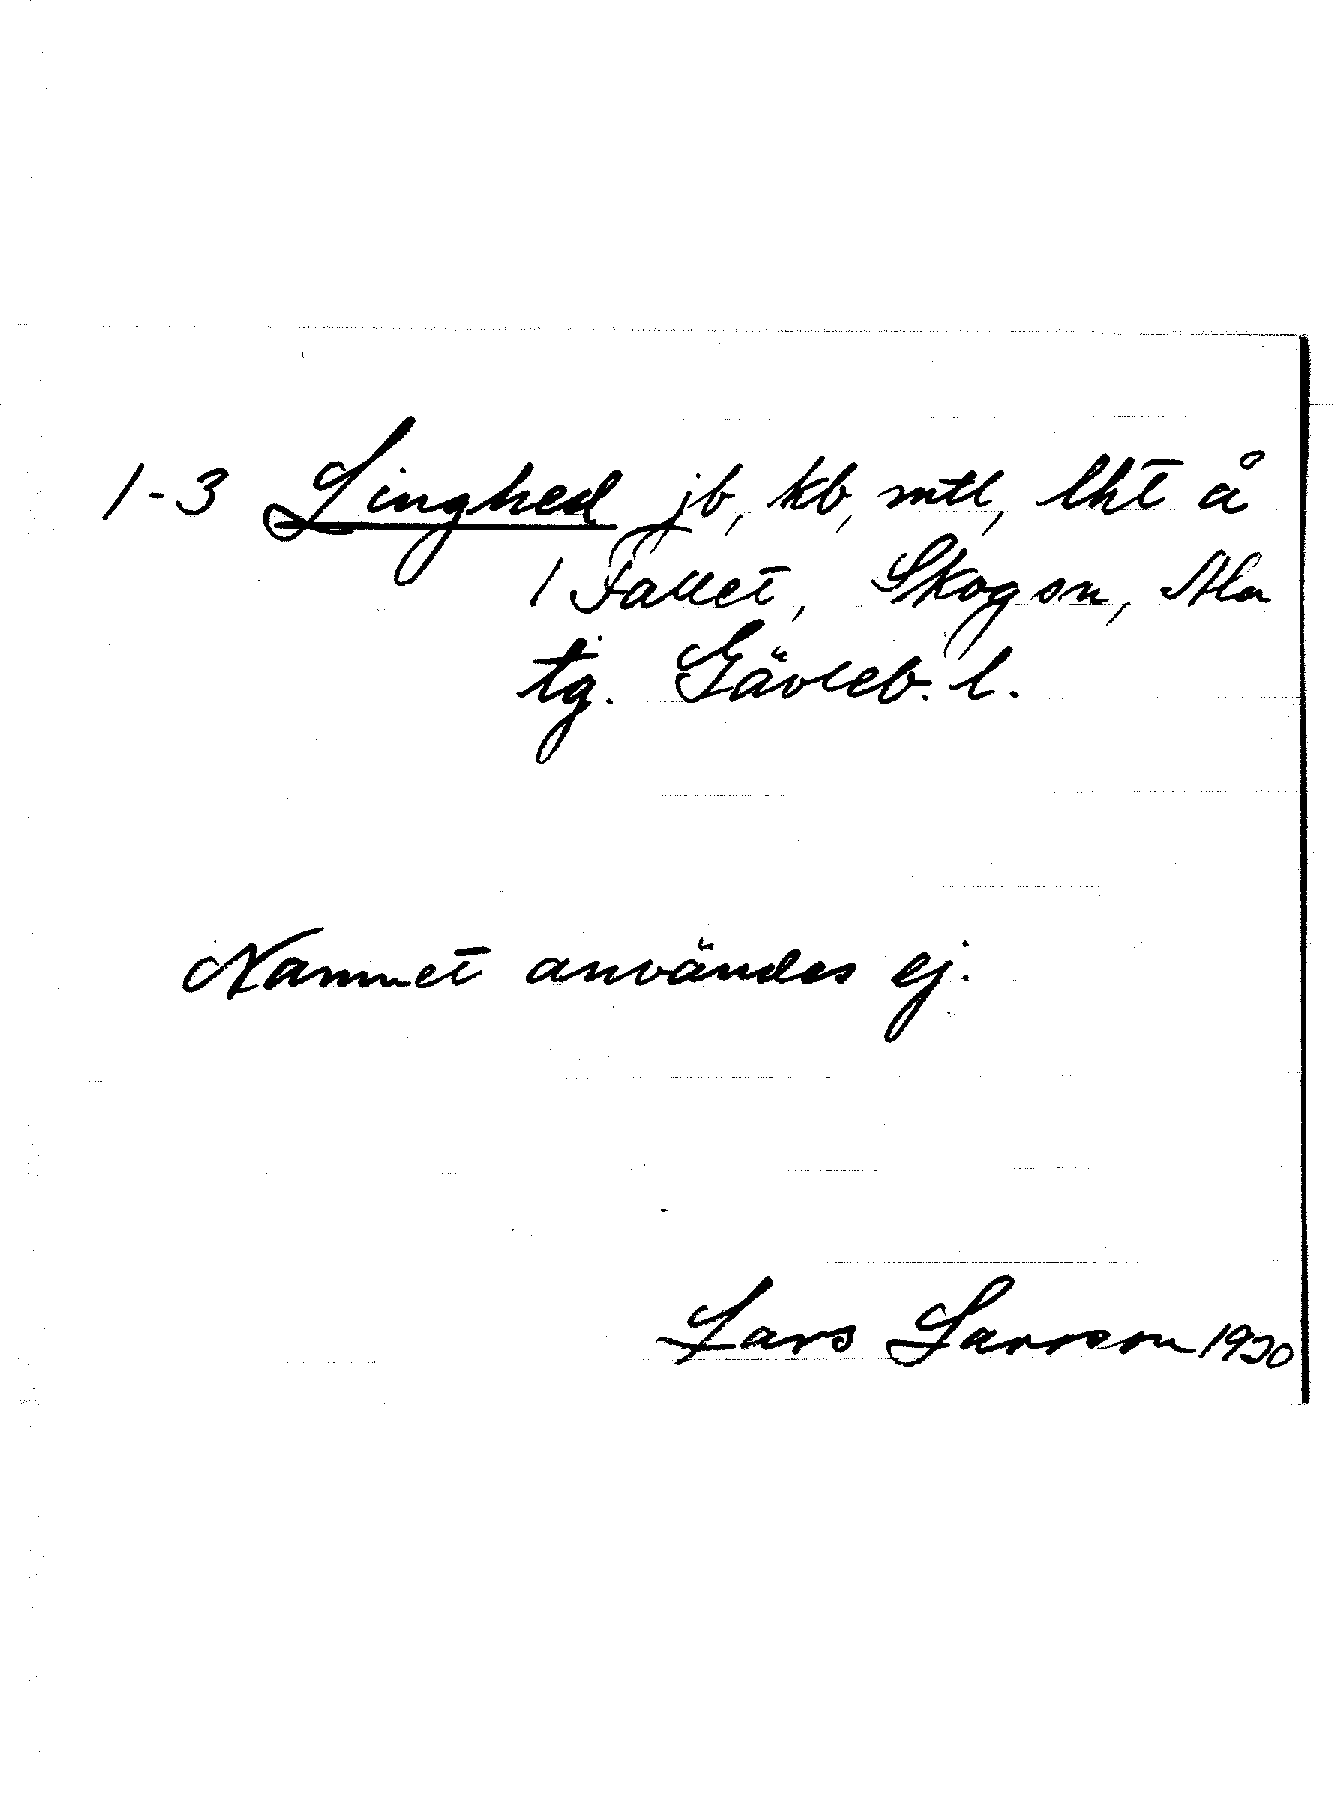 1-3 Linghed jb, kb, mtl, lht å
1 Fallet, Skog sn, Ala
tg. Gävleb. l.
Namnet användes ej.
Lars Larsson 1920